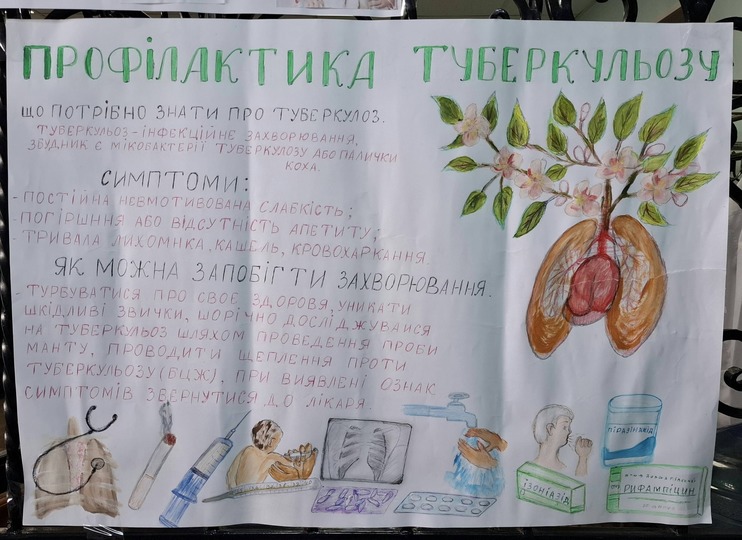 ПРОФІЛАКТИКА ТУБЕРКУЛЬОЗУ
ЩО ПОТРІБНО ЗНАТИ ПРО ТУБЕРКУЛОЗ.
ТУБЕРКУЛЬОЗ-ІНФЕКЦІЙНЕ ЗАХВОРЮВАННЯ,
ЗБУДНИК Є МІКОБАКТЕРІЇ ТУБЕРКУЛОЗУ АБО ПАЛИЧКИ
КОХА.
СИМПТОМИ:
- ПОСТІЙНА НЕВМОТИВОВАНА СЛАБКІСТЬ;
- ПОГІРШННЯ АБО ВІДСУТНІСТЬ АПЕТИТУ;
- ТРИВАЛА ЛИХОМНКА, КАШЕЛЬ, КРОВОХАРКАННЯ.
ЯК МОЖНА ЗАПОБІГТИ ЗАХВОРЮВАННЯ.
- ТУРБУВАТИСЯ ПРО СВОЄ ЗДОРОВЯ, УНИКАТИ
ШКІДЛИВІ ЗВИЧКИ, ШОРІЧНО ДОСЛІДЖУВАЙСЯ
НА ТУБЕРКУЛЬОЗ ШЛЯХОМ ПРОВЕДЕННЯ ПРОБИ
МАНТУ, ПРОВОДИТИ ЩЕПЛЕННЯ ПРОТИ
ТУБЕРКУЛЬОЗУ (БЦЖ), ПРИ ВИЯВЛЕНІ ОЗНАК
СИМПТОМІВ ЗВЕРНУТИСЯ ДО ЛІКАРЯ.
ПІРАЗІНАМІД
ІЗОНІАЗІД
РИФАМПІЦИН